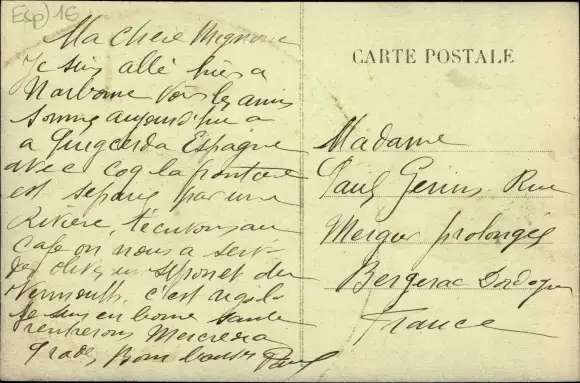 Esp) 16
Ma chère Mignonne
Je suis allé hier a
Narbonne Voir les amis
Somme aujourd'hui a
a Puigcerda Espagne
avec Coq la frontiere
est separé par une
Rivière, t'ecutons au
Cafe on nous a servi
des olives un siphon et du
Vermouth, c'est rigolo
Je suis en bonne santé
rentrerons Mercredi a
Bons baisers Paul
CARTE POSTALE
Madame
Paul Genius Rue
Mergier prolongée
Bergerac Dordogne
France